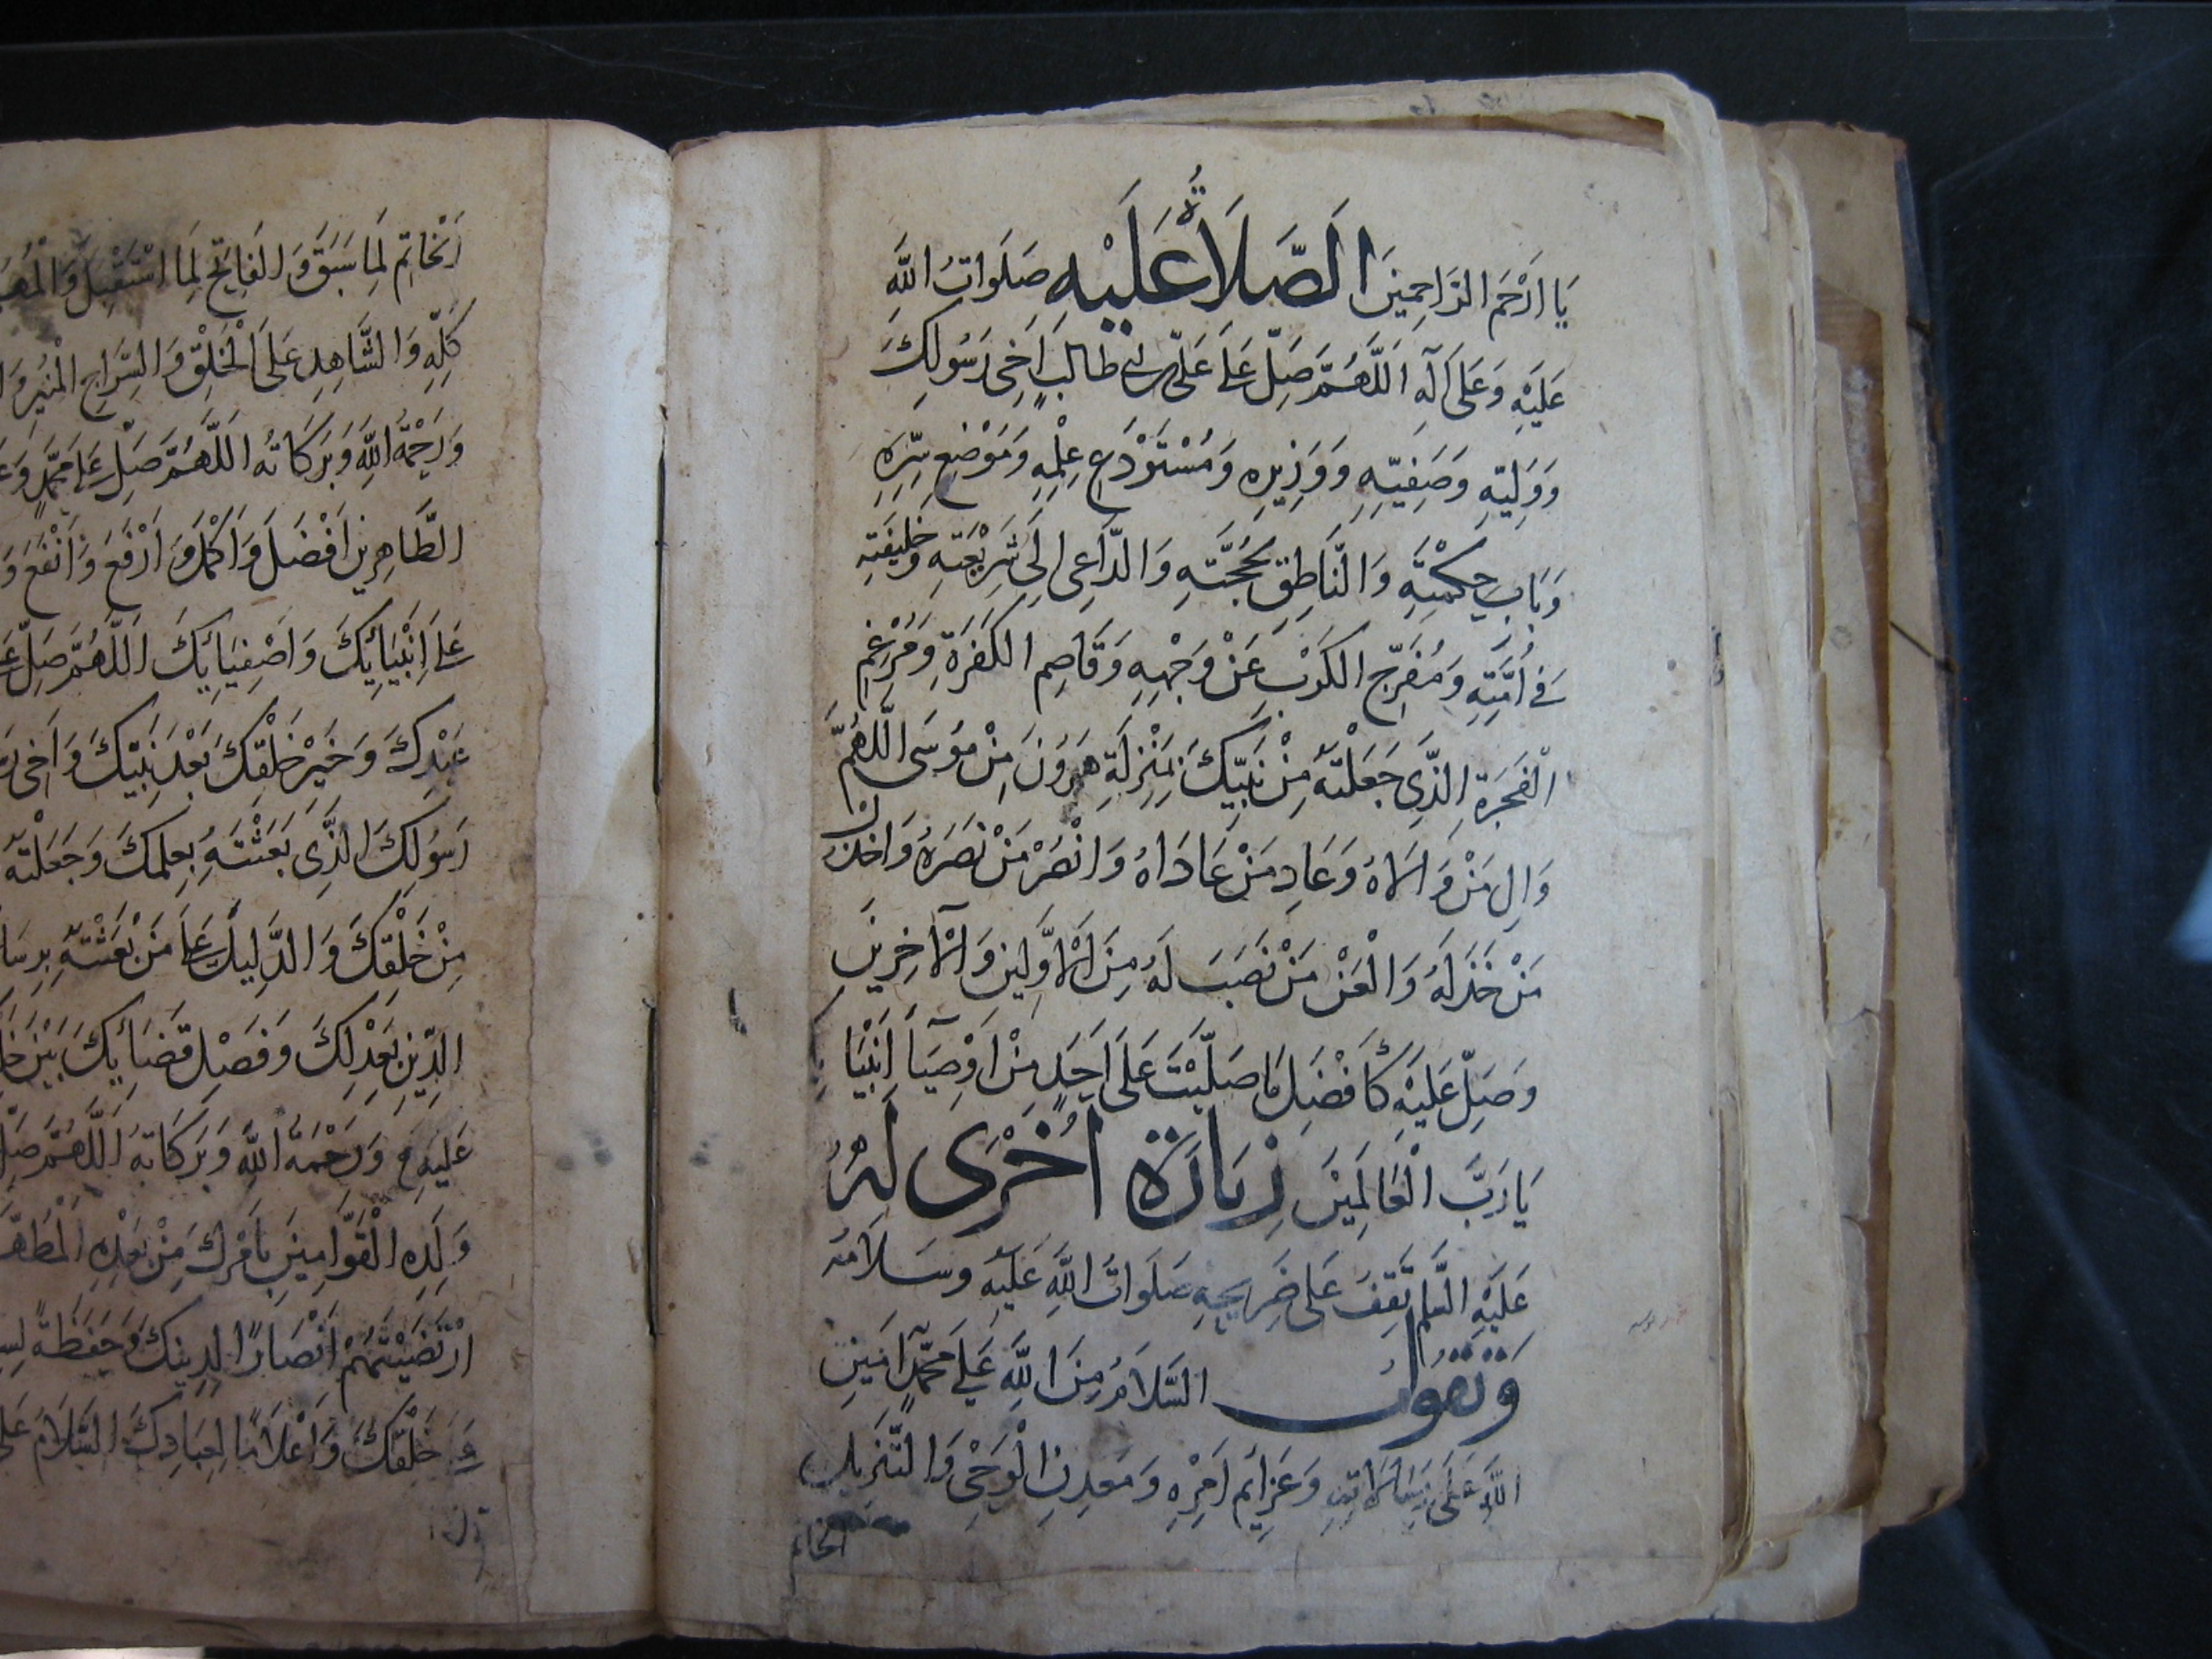 يَا اَرْحَمَ الرَّاحِمِينَ الَصَّلَاةُ عَلَيْهِ صَلَوَاتُ اللَّهِ
عَلَيْهِ وَعَلَى آلِهِ اَللَّهُمَّ صَلِّ عَلَى عَلِيِّ بْنِ اَبِي طَالِبٍ اَخِى رَسُولِكَ
وَوَلِيِّهِ وَصَفِيِّهِ وَوَزِيرِهِ وَمُسْتَوْدَعِ عِلْمِهِ وَمَوْضِعِ سِرِّهِ
وَبَابِ حِكْمَتِهِ وَالنَّاطِقِ بِحُجَّتِهِ وَالدَّاعِى اِلَى شَرِيْعَتِهِ وَخَلِيفَتِهِ
فِى اُمَّتِهِ وَمُفَرِّجِ الْكَرْبِ عَنْ وَجْهِهِ وَقَاصِمِ الْكَفَرَةِ وَمُرْغِمِ
الْفَجَرَةِ الَّذِى جَعَلْتَهُ مِنْ نَبِيِّكَ بِمَنْزِلَةِ هَرُونَ مِنْ مُوسَى اَللَّهُمَّ
وَالِ مَنْ وَالَاهُ وَعَادِ مَنْ عَادَاهُ وَانْصُرْ مَنْ نَصَرَهُ وَاخْذُلْ
مَنْ خَذَلَهُ وَالْعَنْ مَنْ نَصَبَ لَهُ مِنَ الْاَوَّلِينَ وَالْآخِرِينَ
وَصَلِّ عَلَيْهِ كَاَفْضَلِ مَا صَلَّيْتَ عَلَى اَحَدٍ مِنْ اَوْصِيَآءِ اَنْبِيَائِكَ
يَا رَبَّ الْعَالَمِينَ زِيَارَةٌ اُخْرَى لَهُ
عَلَيْهِ السَّلَمُ تَقِفُ عَلَى ضَرِيحِهِ صَلَوَاتُ اللَّهِ عَلَيْهِ وَسَلَامُهُ
وَتَقُولُ السَّلَامُ مِنَ اللَّهِ عَلَى مُحَمَّدٍ اَمِينِ
اللَّهِ عَلَى رِسَالَاتِهِ وَعَزَائِمِ اَمْرِهِ وَمَعْدِنِ الْوَحْىِ وَالتَّنْزِيلِ
الخاتم
اَلْخَاتِمِ لِمَا سَبَقَ وَالْفَاتِحِ لِمَا اسْتُقْبِلَ
كُلِّهِ وَالشَّاهِدِ عَلَى الْخَلْقِ وَالسِّرَاجِ الْمُنِيرِ
وَرَحْمَةُ اللَّهِ وَبَرَكَاتُهُ اَللَّهُمَّ صَلِّ عَلَى مُحَمَّدٍ
الطَّاهِرِينَ اَفْضَلَ وَاَكْمَلَ وَاَرْفَعَ وَاَنْفَعَ
عَلَى اَنْبِيَائِكَ وَاَصْفِيَائِكَ اَللَّهُمَّ صَلِّ
عَبْدِكَ وَخَيْرِ خَلْقِكَ بَعْدَ نَبِيِّكَ وَاَخِى
رَسُولِكَ الَّذِى بَعَثْتَهُ بِعِلْمِكَ وَجَعَلْتَهُ
مِنْ خَلْقِكَ وَالدَّلِيلِ عَلَى مَنْ بَعَثْتَهُ
الدِّينِ بِعَدْلِكَ وَفَصْلِ قَضَائِكَ بَيْنَ
عَلَيْهِ وَرَحْمَةُ اللَّهِ وَبَرَكَاتُهُ اَللَّهُمَّ
وَلَدِهِ الْقَوَّامِينَ بِاَمْرِكَ مِنْ بَعْدِهِ
ارْتَضَيْتَهُمْ اَنْصَارًا لِدِينِكَ وَحَفَظَةً
خَلْقِكَ وَاَعْلَامًا لِعِبَادِكَ السَّلَامُ